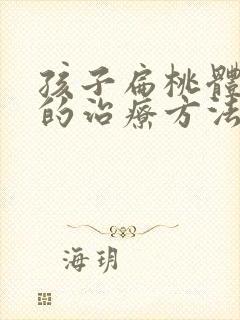 孩子扁桃體
的治療方法
海玥